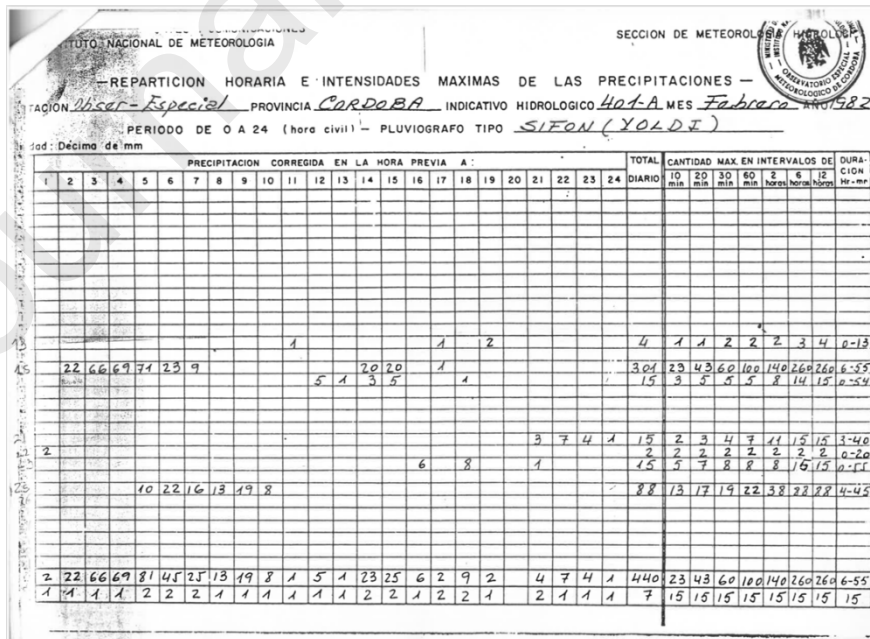 INSTITUTO NACIONAL DE METEOROLOGIA
SECCION DE METEOROLOGIA HIDROLOGI
—REPARTICION HORARIA E INTENSIDADES MAXIMAS DE LAS PRECIPITACIONES —
TACION Obser-Especial PROVINCIA CORDOBA INDICATIVO HIDROLOGICO 401-A MES Febrero AÑO 1982
PERIODO DE 0 A 24 (hora civil) — PLUVIOGRAFO TIPO SIFON (YOLDI)
dad: Décima de mm
PRECIPITACION CORREGIDA EN LA HORA PREVIA A: TOTAL DIARIO CANTIDAD MAX. EN INTERVALOS DE DURACION Hr-mr
1 2 3 4 5 6 7 8 9 10 11 12 13 14 15 16 17 18 19 20 21 22 23 24 10 min 20 min 30 min 60 min 2 horas 6 horas 12 horas
13 1 1 2 4 1 1 2 2 2 3 4 0-13
15 22 66 69 71 23 9 20 20 1 301 23 43 60 100 140 260 260 6-55
5 1 3 5 1 15 3 5 5 5 8 14 15 0-54
3 7 4 1 15 2 3 4 7 11 15 15 3-40
2 2 2 2 2 2 2 2 2 0-20
6 8 1 15 5 7 8 8 8 15 15 0-55
10 22 16 13 19 8 88 13 17 19 22 38 88 88 4-45
2 22 66 69 81 45 25 13 19 8 1 5 1 23 25 6 2 9 2 4 7 4 1 440 23 43 60 100 140 260 260 6-55
1 1 1 1 2 2 2 1 1 1 1 1 1 2 2 1 2 2 1 2 1 1 1 7 15 15 15 15 15 15 15 15